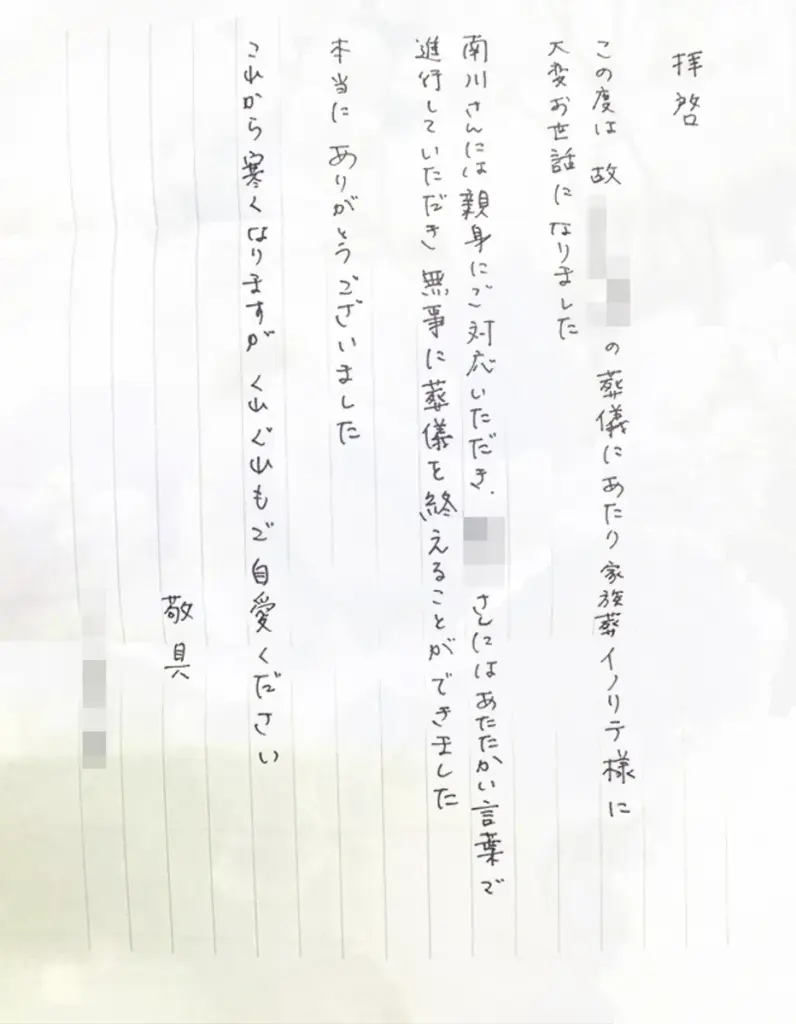 拝啓
この度は 故 の葬儀にあたり 家族葬イノリテ様に
大変お世話になりました
南川さんには親身にご対応いただき. さんにはあたたかい言葉で
進行していただき 無事に葬儀を終えることができました
本当に ありがとうございました
これから寒くなりますが くれぐれもご自愛ください
敬具